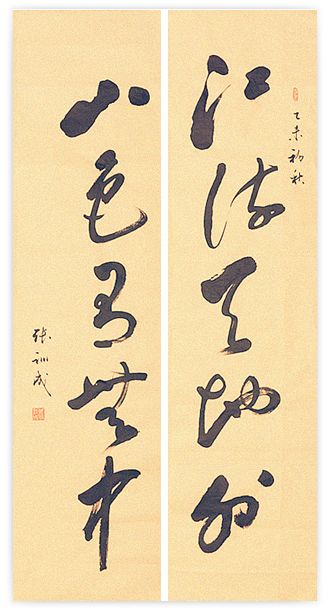 乙未初秋
江流天地外
山色有無中
張訓成